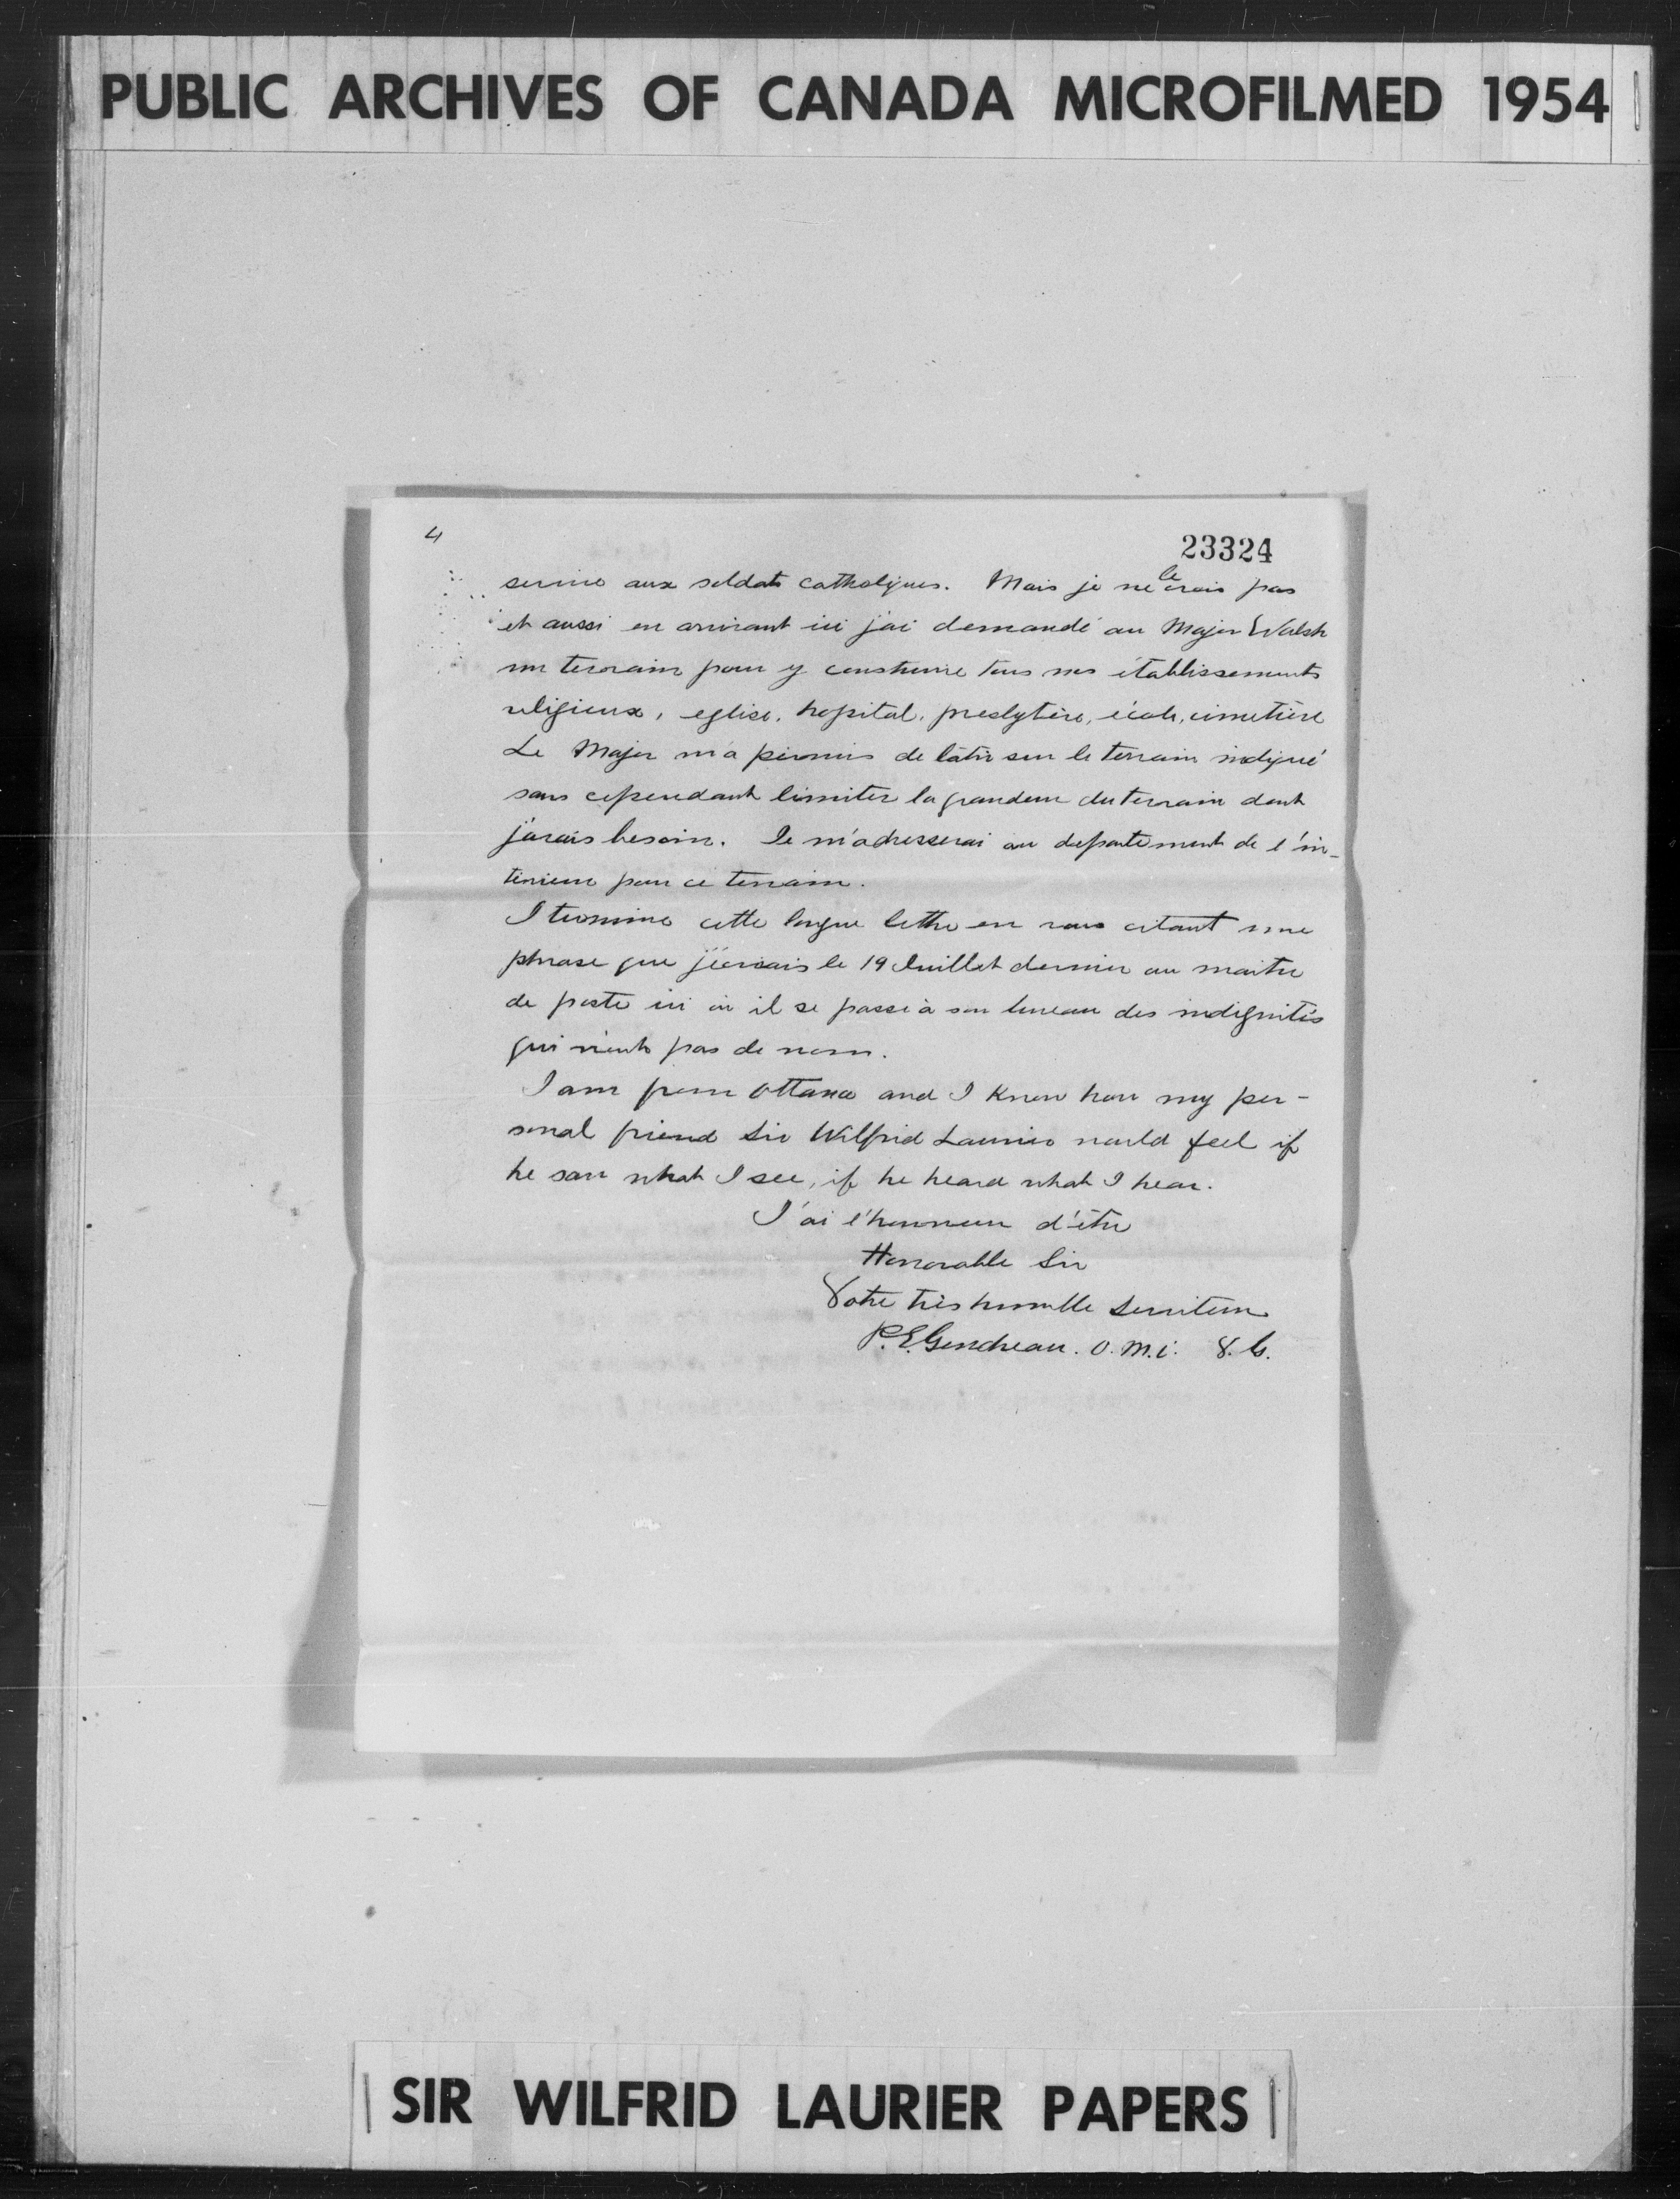 PUBLIC ARCHIVES OF CANADA MICROFILMED 1954
4
23324
service aux soldats catholiques. Mais je ne le crois pas
et aussi en arrivant ici j'ai demandé au Major Walsh
un terrain pour y construire tous nos établissements
religieux, eglise, hopital, presbytère, école, cimetière
Le Major m'a permis de bâtir sur le terrain indiqué
sans cependant limiter la grandeur du terrain dont
j'avais besoin. Je m'adresserai au departement de l'in-
térieur pour ce terrain.
Je termine cette longue lettre en vous citant une
phrase que j'écrivais le 19 Juillet dernier au maitre
de poste ici où il se passe à son bureau des indignités
qui n'ont pas de nom.
I am from Ottawa and I know how my per-
sonal friend Sir Wilfrid Laurier would feel if
he saw what I see, if he heard what I hear.
J'ai l'honneur d'être
Honorable Sir
Votre très humble serviteur
P. E. Gendreau. O. M. I. V. G.
SIR WILFRID LAURIER PAPERS